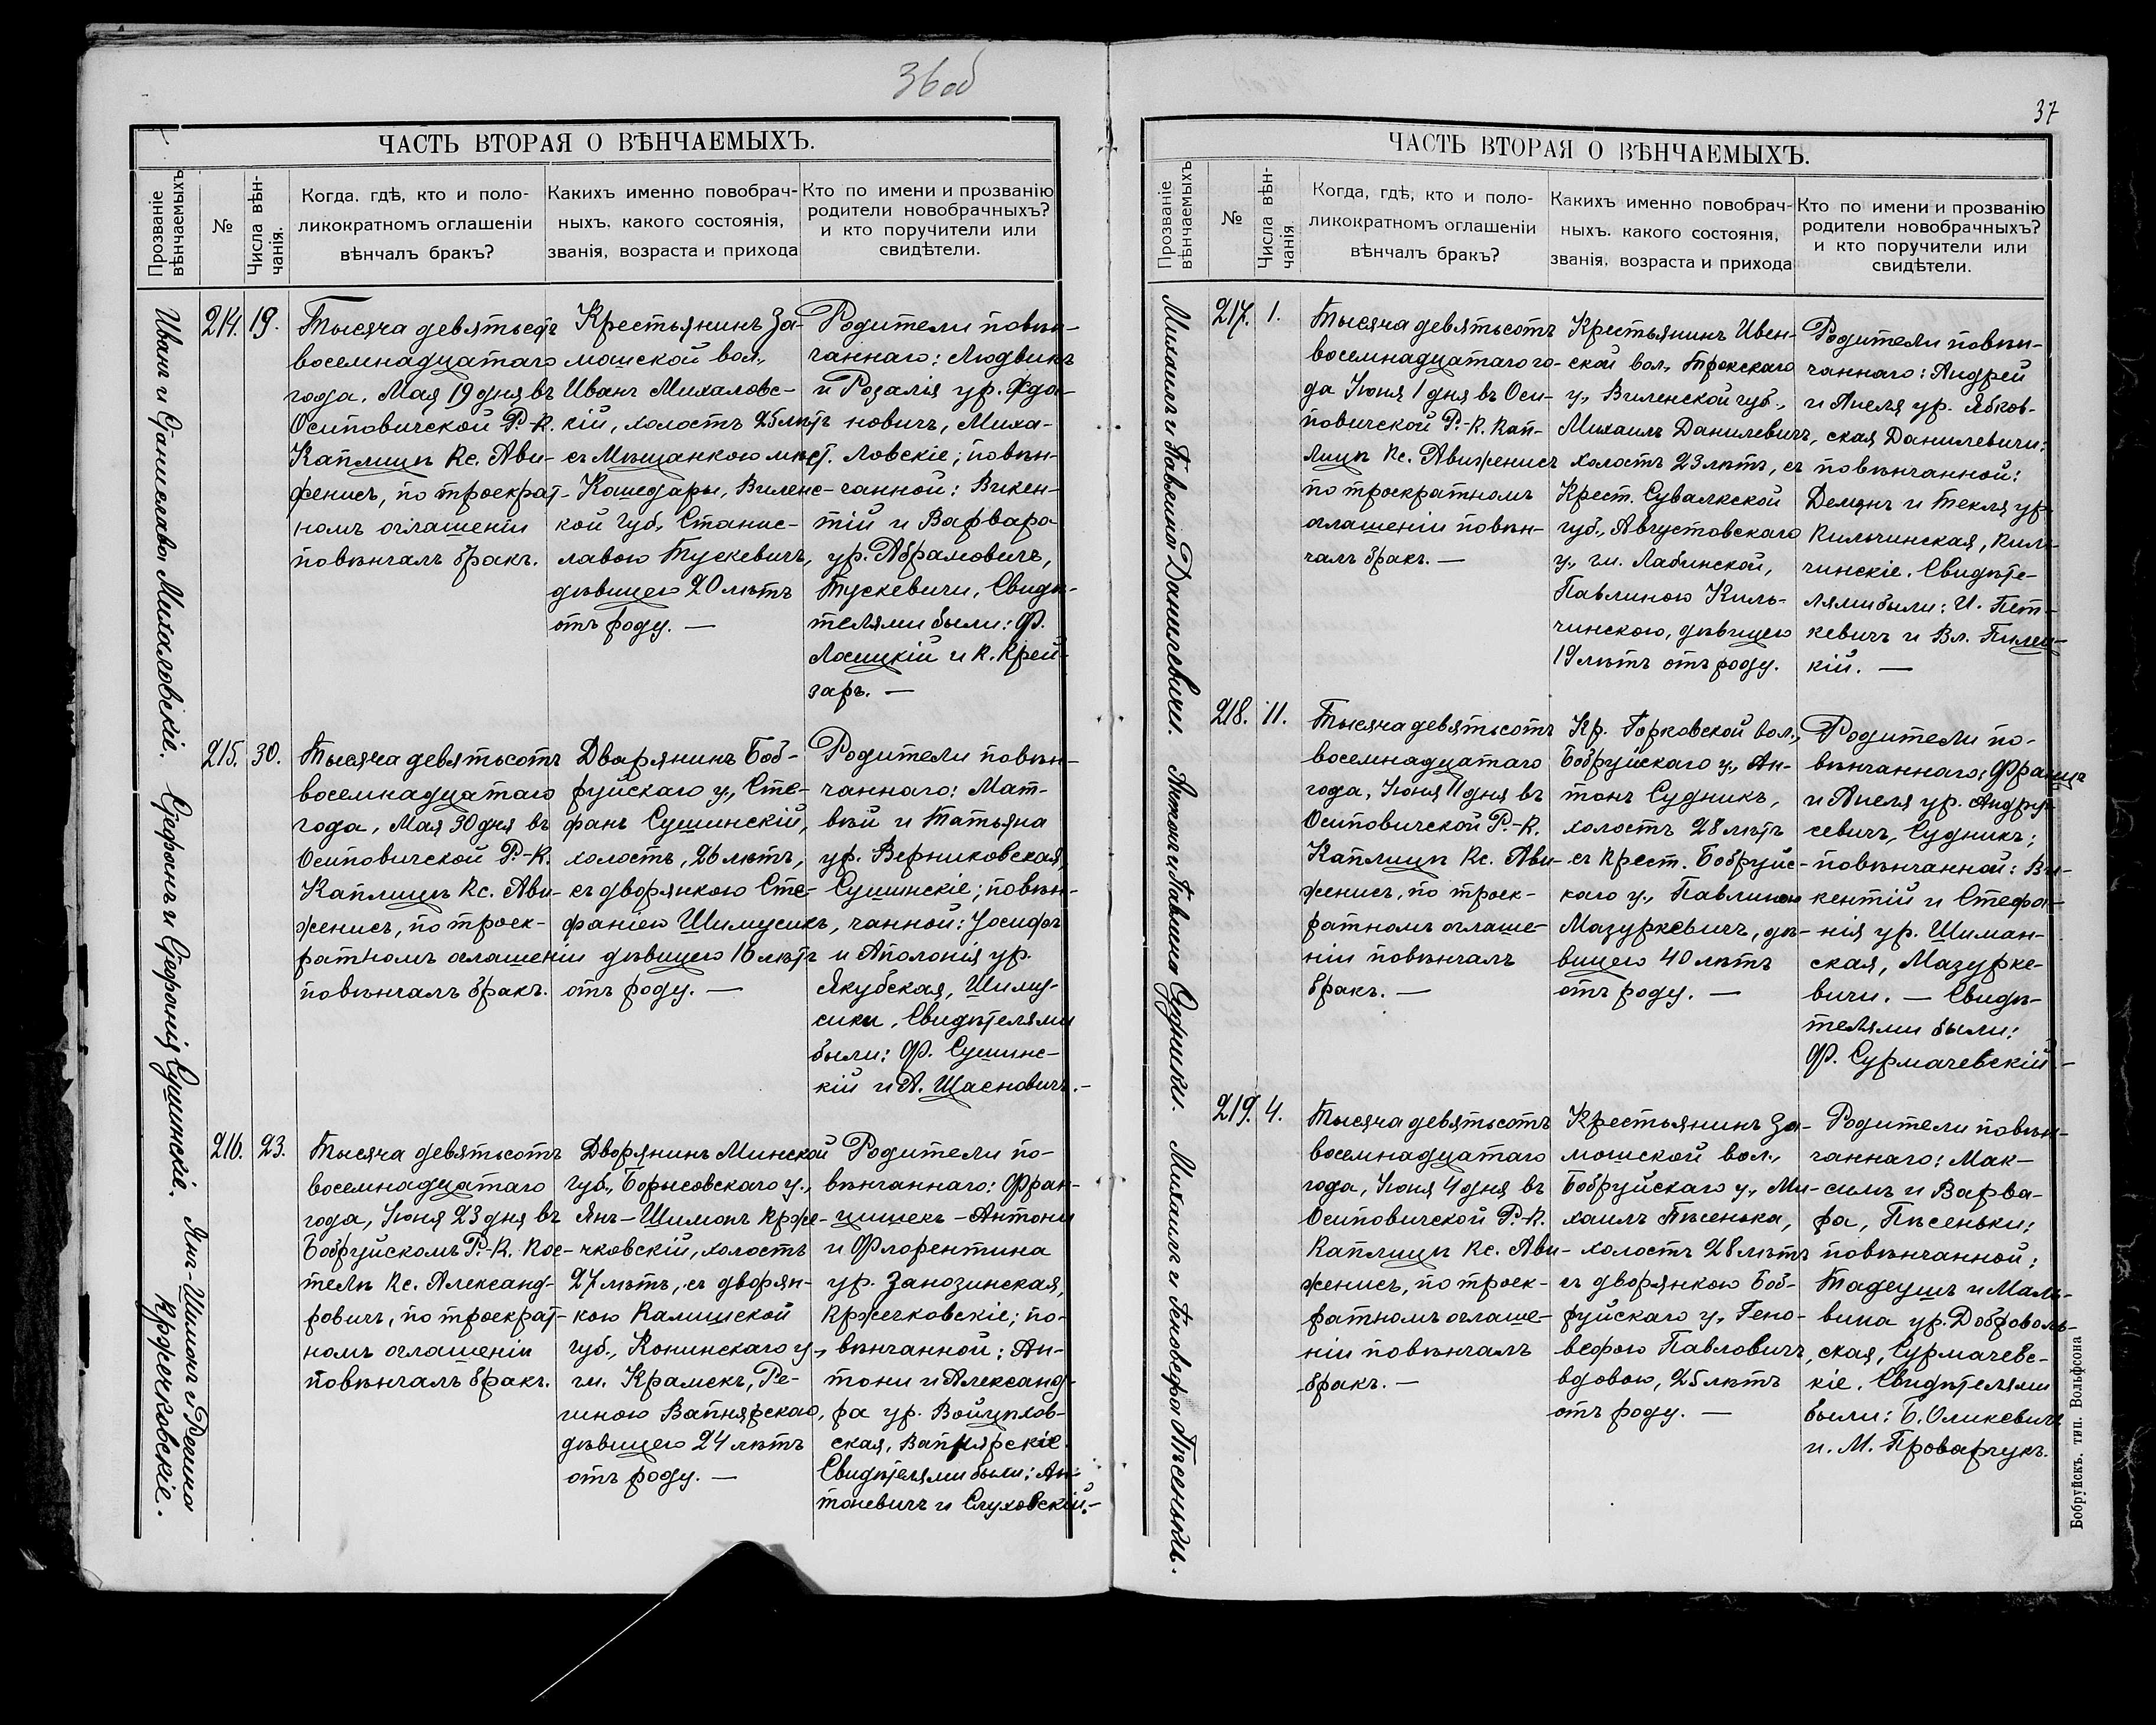 36об
ЧАСТЬ ВТОРАЯ О ВѢНЧАЕМЫХЪ.
Прозваніе
вѣнчаемыхъ
№
Числа вѣн-
чанія.
Когда, гдѣ, кто и поло-
ликократномъ оглашеніи
вѣнчалъ бракъ?
Какихъ именно повобрач-
ныхъ, какого состоянія,
званія, возраста и прихода
Кто по имени и прозванію
родители новобрачныхъ?
и кто поручители или
свидѣтели.
Иванъ и Станислава Михаловскіе.
214. 19.
Тысяча девятьсотъ
восемнадцатаго
года, Мая 19 дня въ
Осиповичской Р.-К.
Каплицѣ Кс. Ави-
женисъ, по троекрат-
номъ оглашеніи
повѣнчалъ бракъ.
Крестьянинъ За-
мошской вол.,
Иванъ Михаловс-
кій, холостъ 25 лѣтъ
съ Мѣщанкою мѣст.
Кашедары, Виленс-
кой губ., Станис-
лавою Тускевичъ,
дѣвицею 20 лѣтъ
отъ роду. —
Родители повѣн-
чаннаго: Людвикъ
и Розалія ур. Жда-
новичъ, Миха-
ловскіе; повѣн-
чанной: Викен-
тій и Варвара
ур. Абрамовичъ,
Тускевичи, Свидѣ-
телями были: Ф.
Лосицкій и К. Крей-
заръ. —
Стефанъ и Стефанія Сушинскіе.
215. 30.
Тысяча девятьсотъ
восемнадцатаго
года, Мая 30 дня въ
Осиповичской Р.-К.
Каплицѣ Кс. Ави-
женисъ, по троек-
ратномъ оглашеніи
повѣнчалъ бракъ.
Дворянинъ Боб-
руйскаго у., Сте-
фанъ Сушинскій,
холостъ, 26 лѣтъ,
съ дворянкою Сте-
фаніею Шимусикъ,
дѣвицею 16 лѣтъ
отъ роду. —
Родители повѣн-
чаннаго: Мат-
вѣй и Татьяна
ур. Верниковская,
Сушинскіе; повѣн-
чанной: Іосифъ
и Аполонія ур.
Якубская, Шиму-
сики, Свидѣтелями
были: Ф. Сушинс-
кій и А. Щасновичъ.—
Янъ-Шимонъ и Регина
Кржечковскіе.
216. 23.
Тысяча девятьсотъ
восемнадцатаго
года, Іюня 23 дня въ
Бобруйскомъ Р.-К. Кос-
телѣ Кс. Александ-
ровичъ, по троекрат-
номъ оглашеніи
повѣнчалъ бракъ.
Дворянинъ Минской
губ., Борисовскаго у.,
Янъ-Шимонъ Крже-
чковскій, холостъ
27 лѣтъ, съ дворян-
кою Калишской
губ., Конинскаго у.,
гм. Крамскъ, Ре-
гиною Вапнярскао,
дѣвицею 24 лѣтъ
отъ роду. —
Родители по-
вѣнчаннаго: Фран-
цишекъ-Антони
и Флорентина
ур. Занозинская,
Кржечковскіе; по-
вѣнчанной: Ан-
тони и Александ-
ра ур. Войцѣхов-
ская, Вапнярскіе.
Свидѣтелями были: Ан-
тоневичъ и Слуховскій.—
37
ЧАСТЬ ВТОРАЯ О ВѢНЧАЕМЫХЪ.
Прозваніе
вѣнчаемыхъ
№
Числа вѣн-
чанія.
Когда, гдѣ, кто и поло-
ликократномъ оглашеніи
вѣнчалъ бракъ?
Какихъ именно повобрач-
ныхъ. какого состоянія,
званія, возраста и прихода
Кто по имени и прозванію
родители новобрачныхъ?
и кто поручители или
свидѣтели.
Михаилъ и Павлина Данилевичи.
217. 1.
Тысяча девятьсотъ
восемнадцатаго го-
да Іюня 1 дня въ Оси-
повичской Р.-К. Кап-
лицѣ Кс. Авиженисъ
по троекратномъ
оглашеніи повѣн-
чалъ бракъ. —
Крестьянинъ Ивен-
ской вол., Трокскаго
у., Виленской губ.,
Михаилъ Данилевичъ,
холостъ 23 лѣтъ, съ
Крест. Сувалкской
губ., Августовскаго
у., гм. Лабинской,
Павлиною Киль-
чинскою, дѣвицею
19 лѣтъ отъ роду.
Родители повѣн-
чаннаго: Андрей
и Анеля ур. Ябков-
ская Данилевичи;
повѣнчанной:
Демянъ и Текля ур.
Кильчинская, Киль-
чинскіе. Свидѣте-
лями были: И. Пет-
кевичъ и Вл. Пилец-
кій. —
Антонъ и Павлина Судники.
218. 11.
Тысяча девятьсотъ
восемнадцатаго
года, Іюня 11 дня въ
Осиповичской Р.-К.
Каплицѣ Кс. Ави-
женисъ, по троек-
ратномъ оглаше-
ніи повѣнчалъ
бракъ. —
Кр. Горковской вол.,
Бобруйскаго у., Ан-
тонъ Судникъ,
холостъ 28 лѣтъ
съ Крест. Бобруйс-
каго у., Павлиною
Мазуркевичъ, дѣ-
вицею 40 лѣтъ
отъ роду. —
Родители по-
вѣнчаннаго: Францъ
и Анеля ур. Андру-
севичъ, Судникъ;
повѣнчанной: Ви-
кентій и Стефа-
нія ур. Шиман-
ская, Мазурке-
вичи. — Свидѣ-
телями были:
Ф. Сурмачевскій —
Михаилъ и Геновефа Пѣсеньки.
219. 4.
Тысяча девятьсотъ
восемнадцатаго
года, Іюня 4 дня въ
Осиповичской Р.-К.
Каплицѣ Кс. Ави-
женисъ, по троек-
ратномъ оглаше-
ніи повѣнчалъ
бракъ. —
Крестьянинъ За-
мошской вол.,
Бобруйскаго у., Ми-
хаилъ Пѣсенька,
холостъ 28 лѣтъ
съ дворянкою Боб-
руйскаго у., Гено-
вефою Павловичъ,
вдовою, 25 лѣтъ
отъ роду. —
Родители повѣн-
чаннаго: Мак-
симъ и Варва-
ра, Пѣсеньки;
повѣнчанной;
Тадеушъ и Маль-
вина ур. Доброволь-
ская, Сурмачевс-
кіе. Свидѣтелями
были: Б. Оликевичъ
и. М. Проварчукъ.
Бобруйскъ. тип. Вольфсона